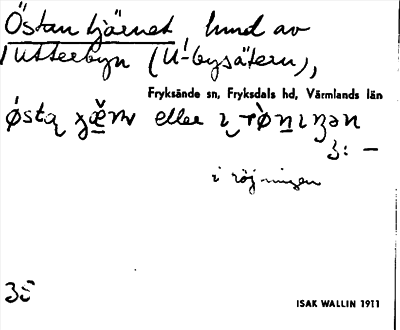 Östan tjärnet, hund av
Utterbyn (U-bysätern),
Fryksände sn, Fryksdals hd, Värmlands län
eller
3: —
i röjningen
35
ISAK WALLIN 1911